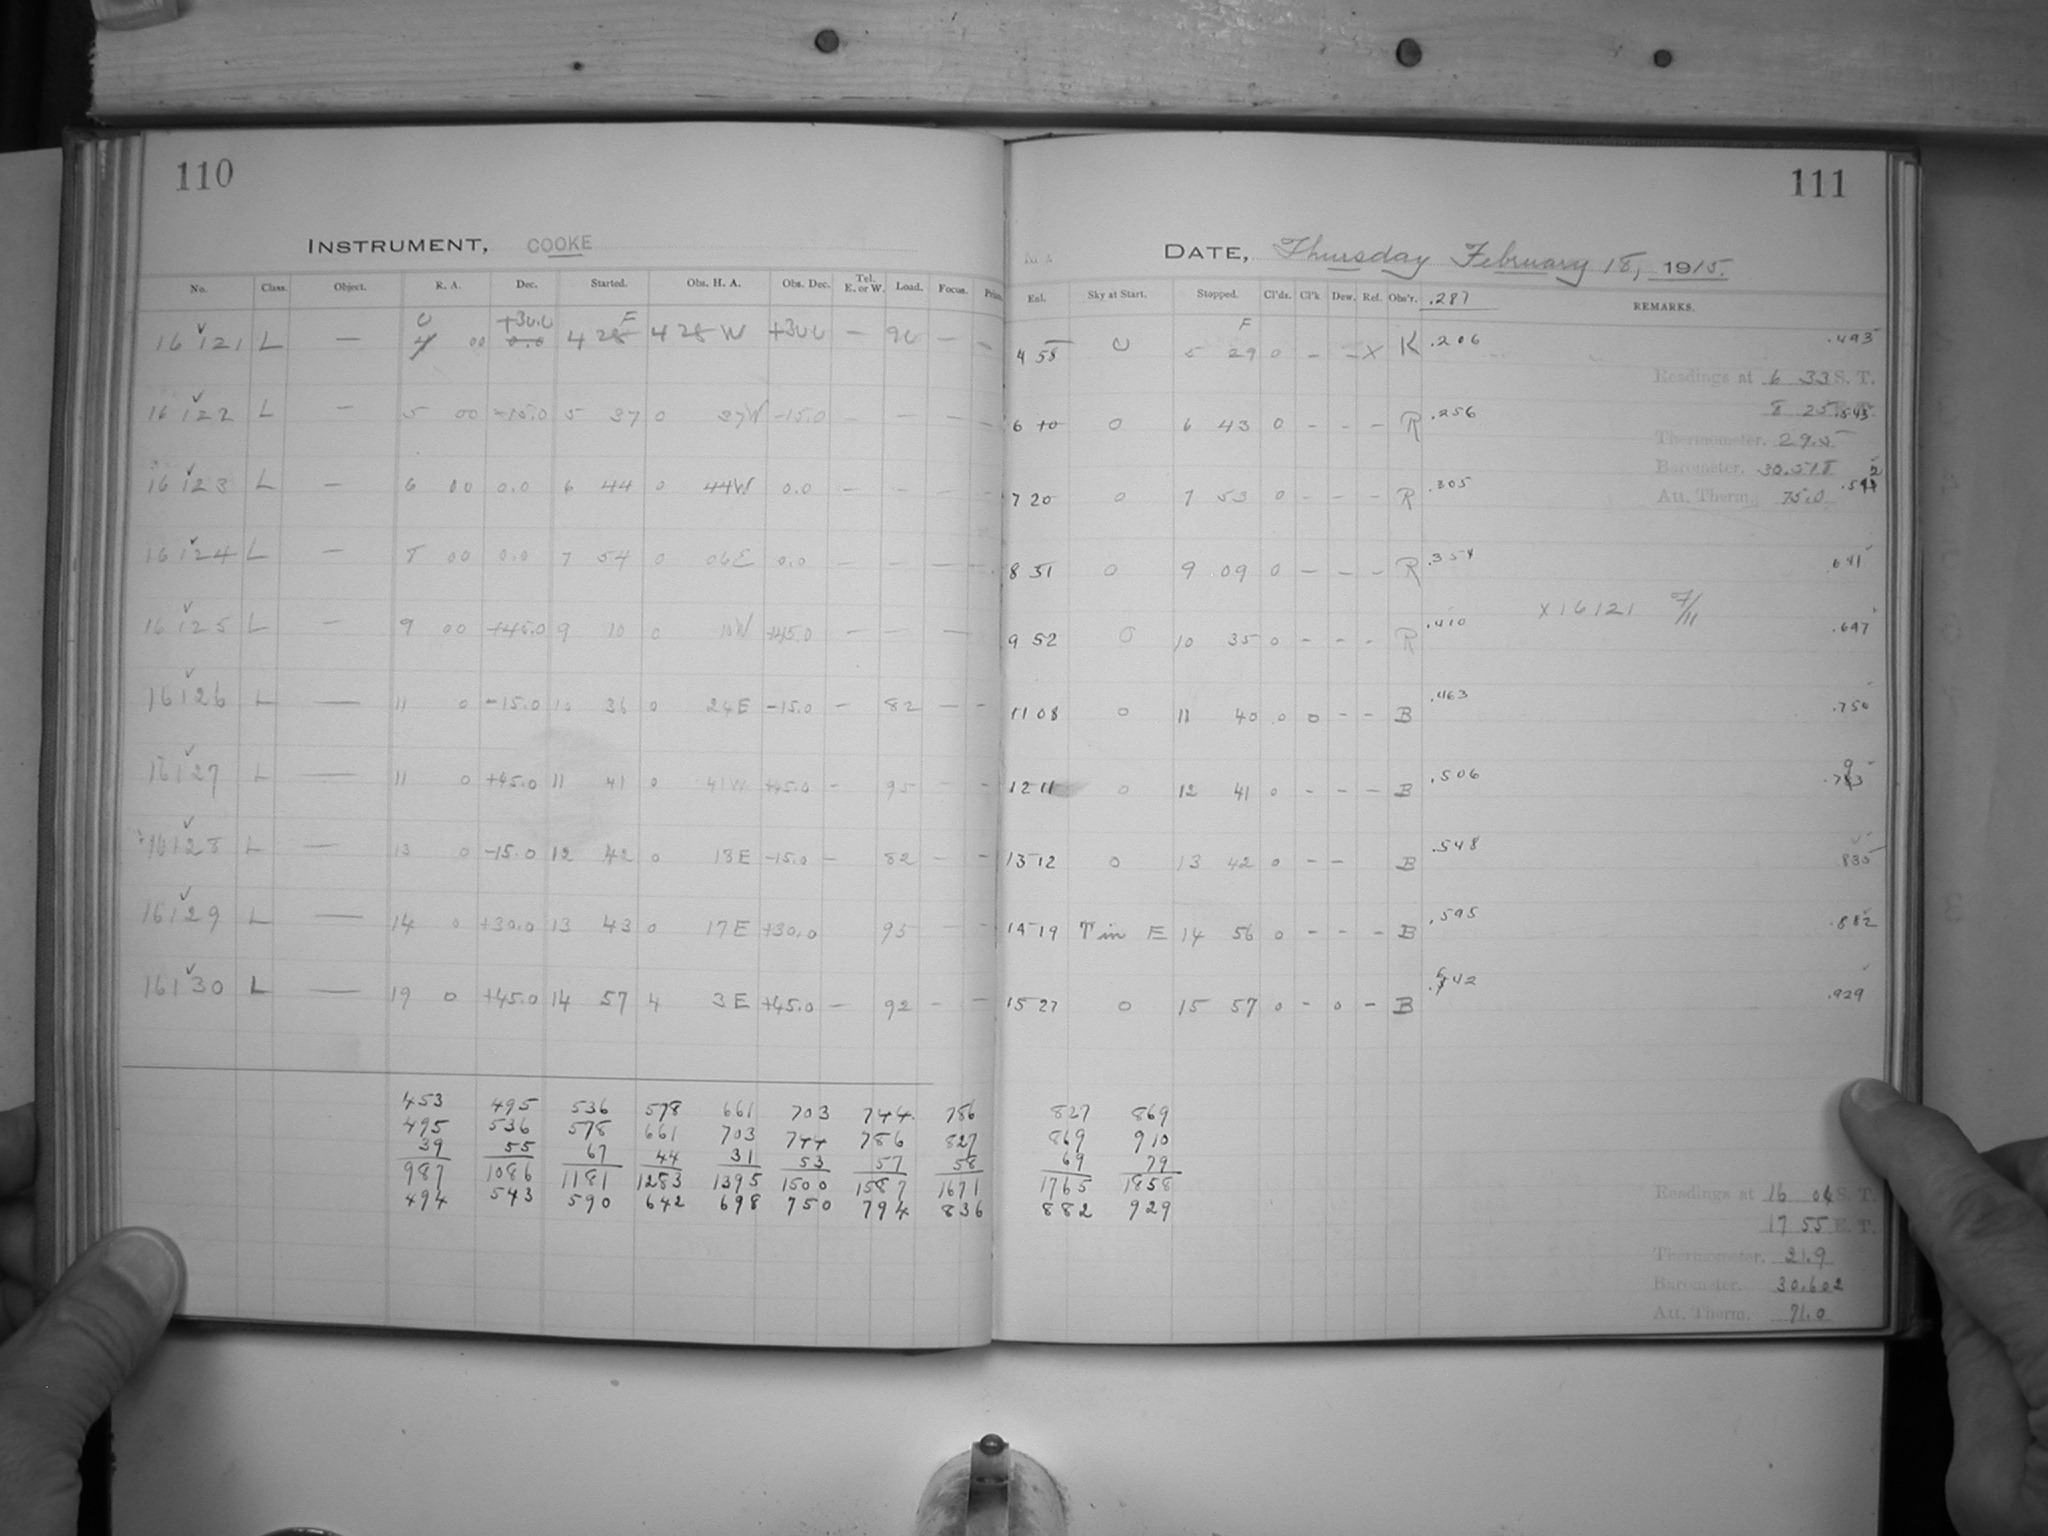 110
INSTRUMENT, COOKE
No. Class. Object. R. A. Dec. Started. Obs. H. A. Obs. Dec. Tel. E. or W. Load. Focus.
0 +30.0 F
16121 L — 4 00 0.0 4 28 4 28 W +30.0 — 90 — —
16122 L — 5 00 -15.0 5 37 0 37W -15.0 — — — —
16123 L — 6 00 0.0 6 44 0 44W 0.0 — — — —
16124 L — 8 00 0.0 7 54 0 06E 0.0 — — — —
16125 L — 9 00 +45.0 9 10 0 10W +45.0 — — —
16126 L — 11 0 -15.0 10 36 0 24E -15.0 — 82 — —
16127 L — 11 0 +45.0 11 41 0 41W +45.0 — 95 — —
16128 L — 13 0 -15.0 12 42 0 18E -15.0 — 82 — —
16129 L — 14 0 +30.0 13 43 0 17E +30.0 95 — —
16130 L — 19 0 +45.0 14 57 4 3E +45.0 — 92 — —
453 495 536 578 661 703 744 786
495 536 578 661 703 744 786 827
39 55 67 44 31 53 57 58
987 1086 1181 1283 1395 1500 1587 1671
494 543 590 642 698 750 794 836
111
DATE, Thursday February 18, 1915.
Enl. Sky at Start. Stopped. Cl'ds. Cl'k Dew. Ref. Obs'r. .287 REMARKS.
F
4 58 0 5 29 0 — — X K .206 .493
Readings at 6 33 S. T.
8 25
6 40 0 6 43 0 — — — R .256 .543
Thermometer.
Barometer. 30.518
7 20 0 7 53 0 — — — R .305
Att. Therm. 75.0
8 31 0 9 09 0 — — — R .354 .641
X16121 F/11
9 52 0 10 35 0 — — — R .410 .697
11 08 0 11 40 0 0 — — B .463 .750
12 11 0 12 41 0 — — — B .506
13 12 0 13 42 0 — — B .548 835
14 19 T in E 14 56 0 — — — B .595 .882
15 27 0 15 57 0 — 0 — B .642 .929
827 869
869 910
69 79
1765 1858
882 929
Readings at 16 04 S. T.
17 55 E. T.
Thermometer. 21.9
Barometer. 30.602
Att. Therm. 71.0